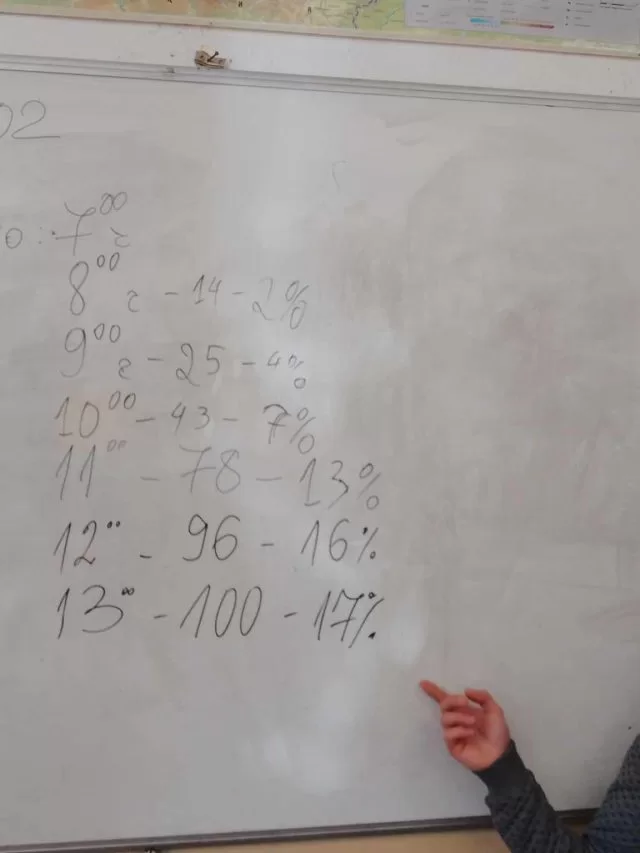 02
о: 7⁰⁰ г
8⁰⁰ г - 14 - 2%
9⁰⁰ г - 25 - 4%
10⁰⁰ - 43 - 7%
11⁰⁰ - 78 - 13%
12⁰⁰ - 96 - 16%
13⁰⁰ - 100 - 17%